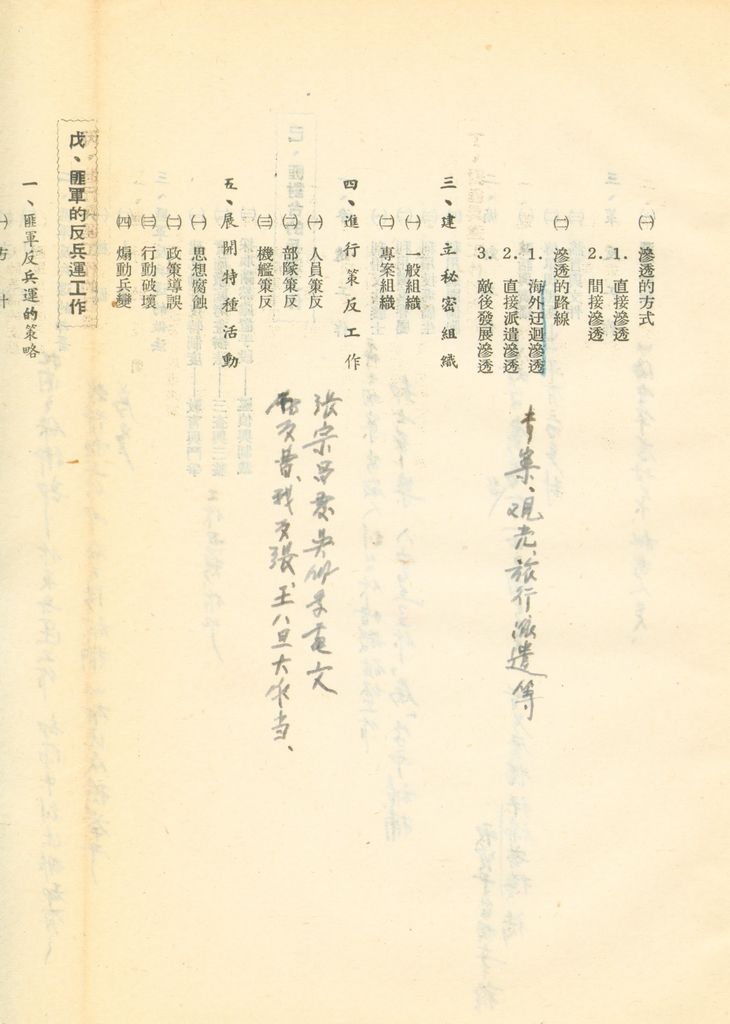 ㈠ 滲透的方式
1. 直接滲透
2. 間接滲透
㈡ 滲透的路線
1. 海外迂迴滲透
2. 直接派遣滲透
3. 敵後發展滲透
觀光、旅行派遣等
三、建立秘密組織
㈠ 一般組織
㈡ 專案組織
四、進行策反工作
㈠ 人員策反
㈡ 部隊策反
㈢ 機艦策反
張宗昌
我反張、王八旦大家当、
五、展開特種活動
㈠ 思想腐蝕
㈡ 政策導誤
㈢ 行動破壞
㈣ 煽動兵變
戊、匪軍的反兵運工作
一、匪軍反兵運的策略